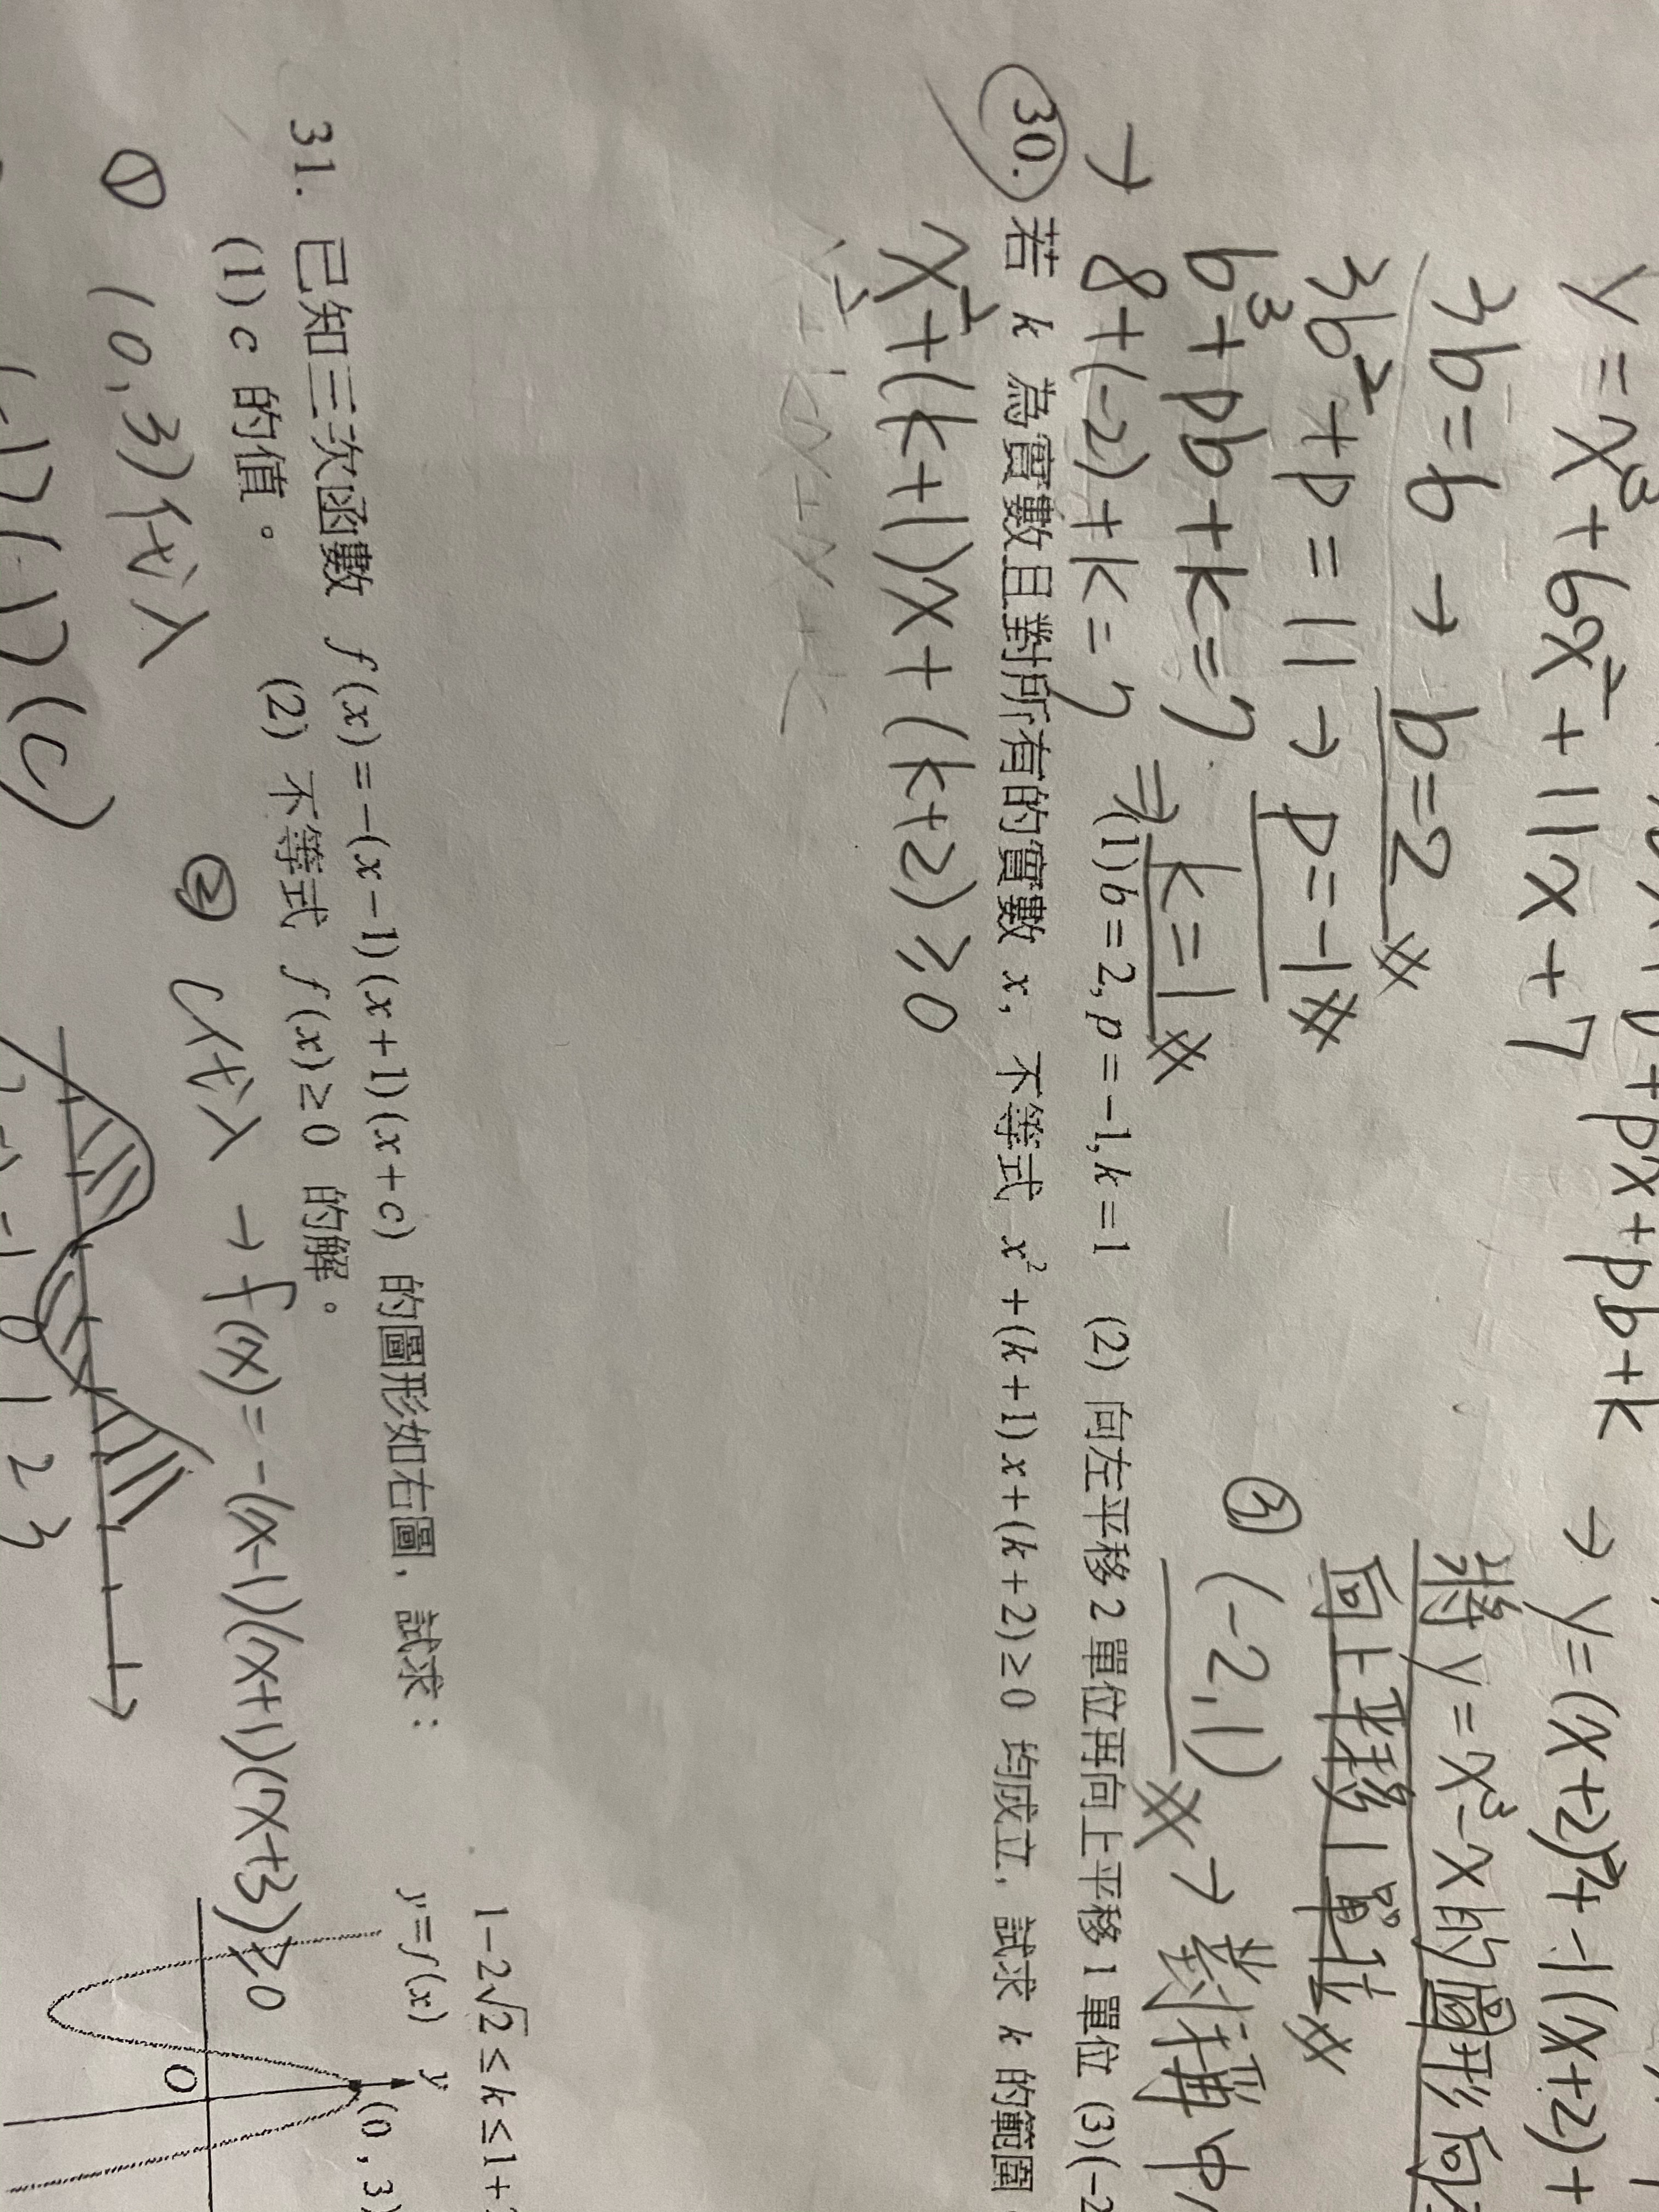 y=x³+6x²+11x+7
→ y=(x+2)³+-1(x+2)+
3b=6 → b=2
將y=x³-x的圖形向
3b²+p=11 → p=-1
向上平移1單位
b³+pb+k=7
③ (-2,1) → 對稱中
→ 8+(-2)+k=7 ⇒ k=1
(1) b=2, p=-1, k=1 (2) 向左平移 2 單位再向上平移 1 單位 (3)(-2
30. 若 k 為實數且對所有的實數 x, 不等式 x²+(k+1)x+(k+2)≥0 均成立, 試求 k 的範圍
x²+(k+1)x+(k+2)≥0
1-2√2≤k≤1+
31. 已知三次函數 f(x)=-(x-1)(x+1)(x+c) 的圖形如右圖, 試求：
(1) c 的值。 (2) 不等式 f(x)≥0 的解。
y=f(x)
y
(0,3)
O
① (0,3)代入
② c代入 → f(x)=-(x-1)(x+1)(x+3)≥0
(-1)(1)(c)
0 1 2 3